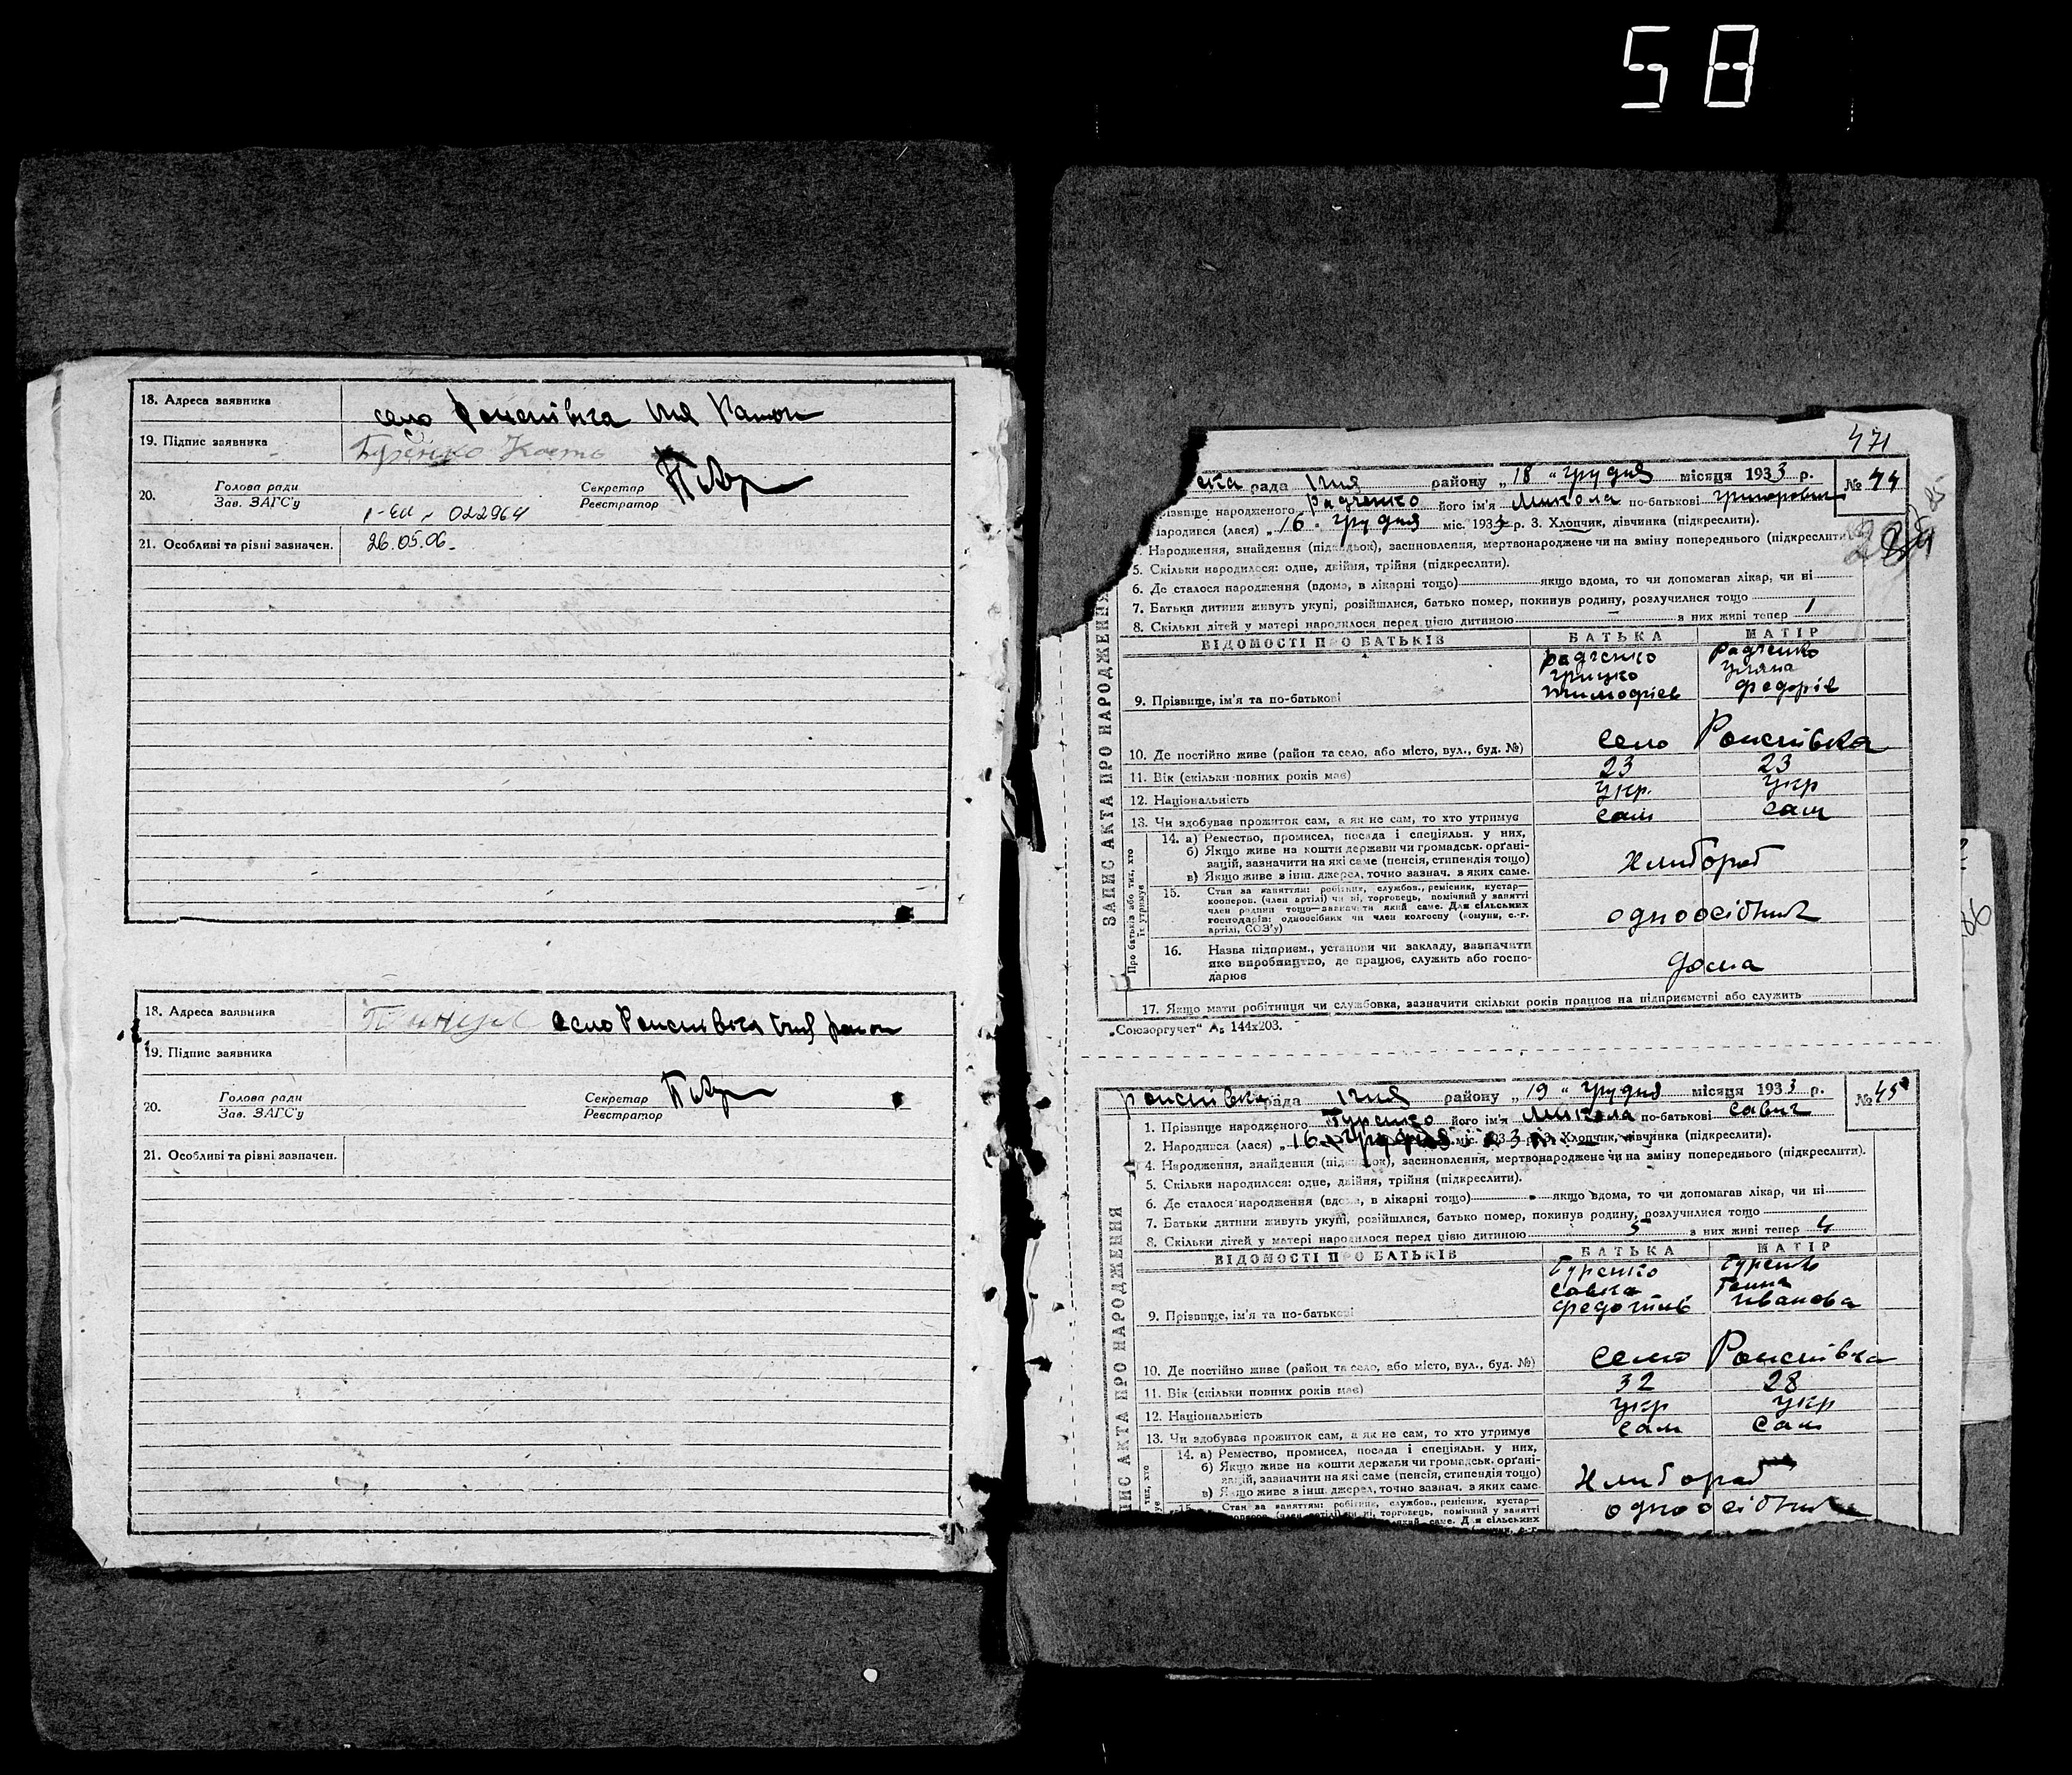 58
18. Адреса заявника
село
19. Підпис заявника
20.
Голова ради
Зав. ЗАГС'у
Секретар
Реєстратор
022964
21. Особливі та різні зазначен.
26.05.06.
18. Адреса заявника
село
19. Підпис заявника
20.
Голова ради
Зав. ЗАГС'у
Секретар
Реєстратор
21. Особливі та різні зазначен.
471
рада район у „ 18 “ грудня місяця 1933 р. № 44
різвище народженого Радченко його ім'я Микола по-батькові
ародився (лася) „ 16 “ грудня міс. 193 р. 3. Хлопчик, дівчинка (підкреслити).
Народження, знайдення (підкидьок), засиновлення, мертвонароджене чи на зміну попереднього (підкреслити
5. Скільки народилося: одне, двійня, трійня (підкреслити).
6. Де сталося народження (вдома, в лікарні тощо) якщо вдома, то чи допомагав лікар, чи ні
7. Батьки дитини живуть укупі, розійшлися, батько помер, покинув родину, розлучилися тощо
8. Скільки дітей у матері народилося перед цією дитиною з них живі тепер 1
ВІДОМОСТІ ПРО БАТЬКІВ БАТЬКА МАТІР
Радченко Радченко
Грицко Уляна
Тимофієв Федорів
9. Прізвище, ім'я та по-батькові
10. Де постійно живе (район та село, або місто, вул., буд. №) село
11. Вік (скільки повних років має) 23 23
12. Національність укр. укр
13. Чи здобуває прожиток сам, а як не сам, то хто утримує сам сам
ЗАПИС АКТА ПРО НАРОДЖЕННЯ
Про батьків або тих, хто їх утримує
14. а) Ремество, промисел, посада і спеціяльн. у них,
б) Якщо живе на кошти держави чи громадськ. орґані-
зацій, зазначити на які саме (пенсія, стипендія тощо)
в) Якщо живе з інш. джерел, точно зазнач. з яких саме.
хлибороб
15. Стан за заняттям: робітник, службов., ремісник, кустар—
кооперов. (член артілі) чи ні, торговець, помічний у занятті
член родини тощо—зазначити який саме. Для сільських
господарів: одноосібник чи член колгоспу (комуни, с.-г.
артілі, СОЗ'у)
одноосібник
16. Назва підприєм., установи чи закладу, зазначити
яке виробництво, де працює, служить або госпо-
дарює
дома
17. Якщо мати робітниця чи службовка, зазначити скільки років працює на підприємстві або служить
„Союзоргучет“ А5 144х203.
рада району „ 19 “ грудня місяця 1933 р. № 45
1. Прізвище народженого Гуренко його ім'я Микола по-батькові Савич
2. Народився (лася) „ 16 міс. 193 р. 3. Хлопчик, дівчинка (підкреслити).
4. Народження, знайдення (підкидьок), засиновлення, мертвонароджене чи на зміну попереднього (підкреслити).
5. Скільки народилося: одне, двійня, трійня (підкреслити).
6. Де сталося народження (вдома, в лікарні тощо) якщо вдома, то чи допомагав лікар, чи ні
7. Батьки дитини живуть укупі, розійшлися, батько помер, покинув родину, розлучилися тощо
8. Скільки дітей у матері народилося перед цією дитиною 5 з них живі тепер 4
ВІДОМОСТІ ПРО БАТЬКІВ БАТЬКА МАТІР
Гуренко Гуренко
Савка Ганна
Федотів Иванова
9. Прізвище, ім'я та по-батькові
10. Де постійно живе (район та село, або місто, вул., буд. №) село
11. Вік (скільки повних років має) 32 28
12. Національність укр укр
13. Чи здобуває прожиток сам, а як не сам, то хто утримує сам сам
АКТА ПРО НАРОДЖЕННЯ
14. а) Ремество, промисел, посада і спеціяльн. у них,
б) Якщо живе на кошти держави чи громадськ. орґані-
зацій, зазначити на які саме (пенсія, стипендія тощо)
в) Якщо живе з інш. джерел, точно зазнач. з яких саме.
хлибороб
Стан за заняттям: робітник, службов., ремісник, кустар—
кооперов. (член артілі) чи ні, торговець, помічний у занятті
одноосібник